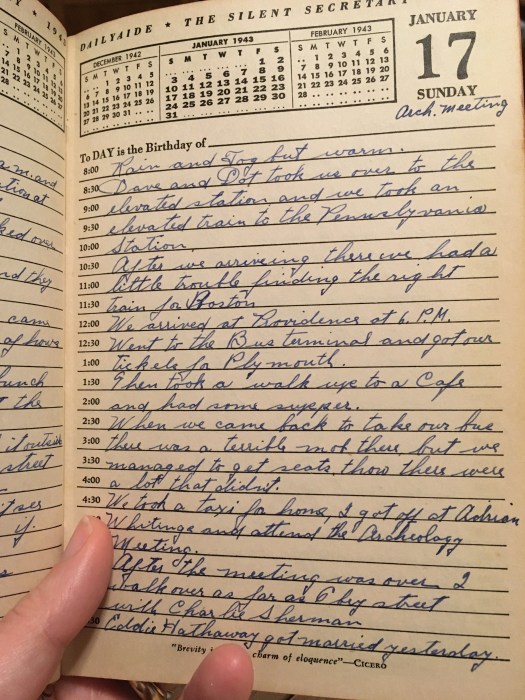 Y ★ 1943
FEBRUARY 1943
S M T W T F S
DAILYAIDE ★ THE SILENT SECRETARY
DECEMBER 1942
S M T W T F S
1 2 3 4 5
6 7 8 9 10 11 12
13 14 15 16 17 18 19
20 21 22 23 24 25 26
27 28 29 30 31
JANUARY 1943
S M T W T F S
1 2
3 4 5 6 7 8 9
10 11 12 13 14 15 16
17 18 19 20 21 22 23
24 25 26 27 28 29 30
31
FEBRUARY 1943
S M T W T F S
1 2 3 4 5 6
7 8 9 10 11 12 13
14 15 16 17 18 19 20
21 22 23 24 25 26 27
28
JANUARY
17
SUNDAY
Arch. Meeting
To DAY is the Birthday of
8:00 Rain and Fog but warm.
8:30 Dave and Dot took us over to the
9:00 elevated station and we took an
9:30 elevated train to the Pennsylvania
10:00 Station.
10:30 After we arriveing there we had a
11:00 little trouble finding the right
11:30 train for Boston
12:00 We arrived at Providence at 6. P.M.
12:30 Went to the Bus terminal and got our
1:00 tickets for Plymouth.
1:30 Then took a walk up to a Cafe
2:00 and had some supper.
2:30 When we came back to take our bus
3:00 there was a terrible mob there but we
3:30 managed to get seats, thow there were
4:00 a lot that didnt.
4:30 We took a taxi for home, I got off at Adrian
Whitings and attend the Archeology
Meeting.
After the meeting was over I
walk over as far as 6 by street
with Charlie Sherman
Eddie Hathaway got married yesterday.
"Brevity is charm of eloquence"—CICERO